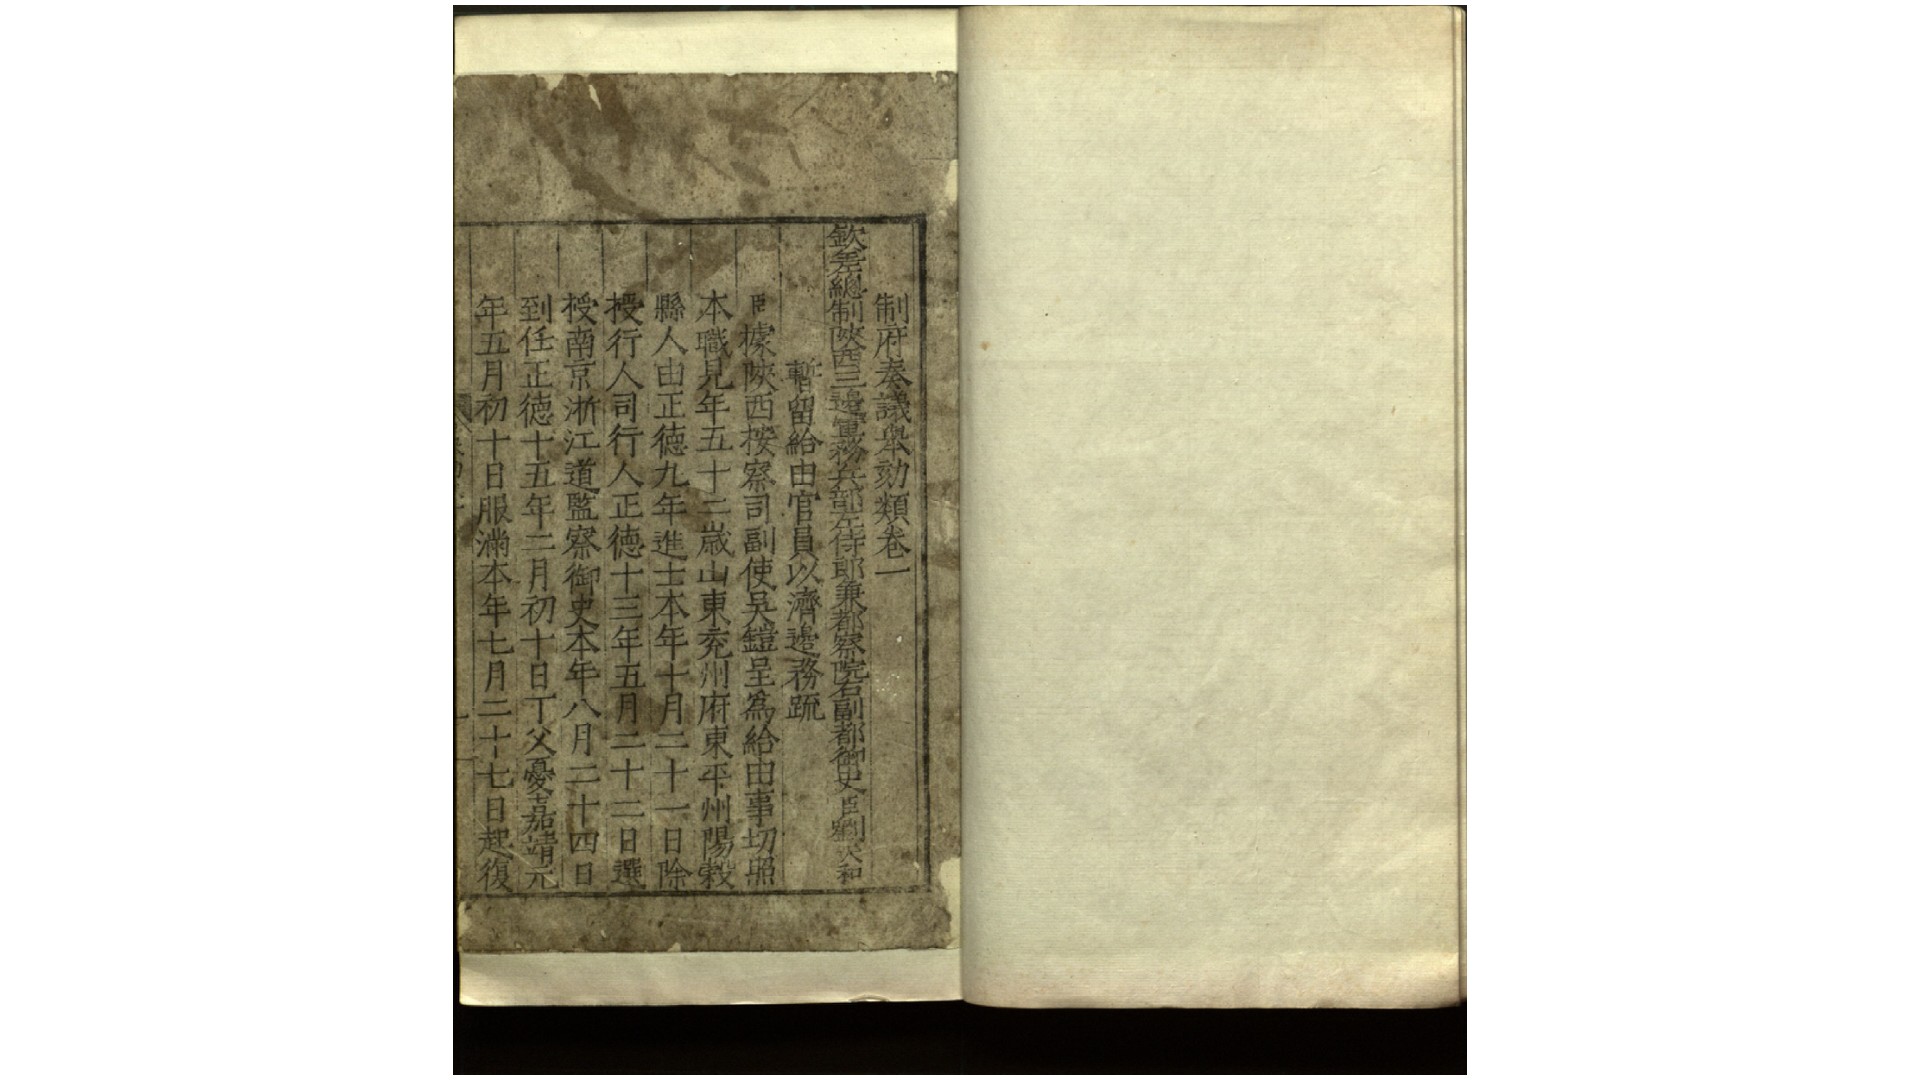 制府奏議舉劾類卷一
欽差總制陝西三邊軍務兵部左侍郎兼都察院右副都御史臣劉天和
暫留給由官員以濟邊務疏
臣據陝西按察司副使吳鎧呈爲給由事切照
本職見年五十二歲山東兖州府東平州陽穀
縣人由正德九年進士本年十月二十一日除
授行人司行人正德十三年五月二十二日選
授南京浙江道監察御史本年八月二十四日
到任正德十五年二月初十日丁父憂嘉靖元
年五月初十日服滿本年七月二十七日起復